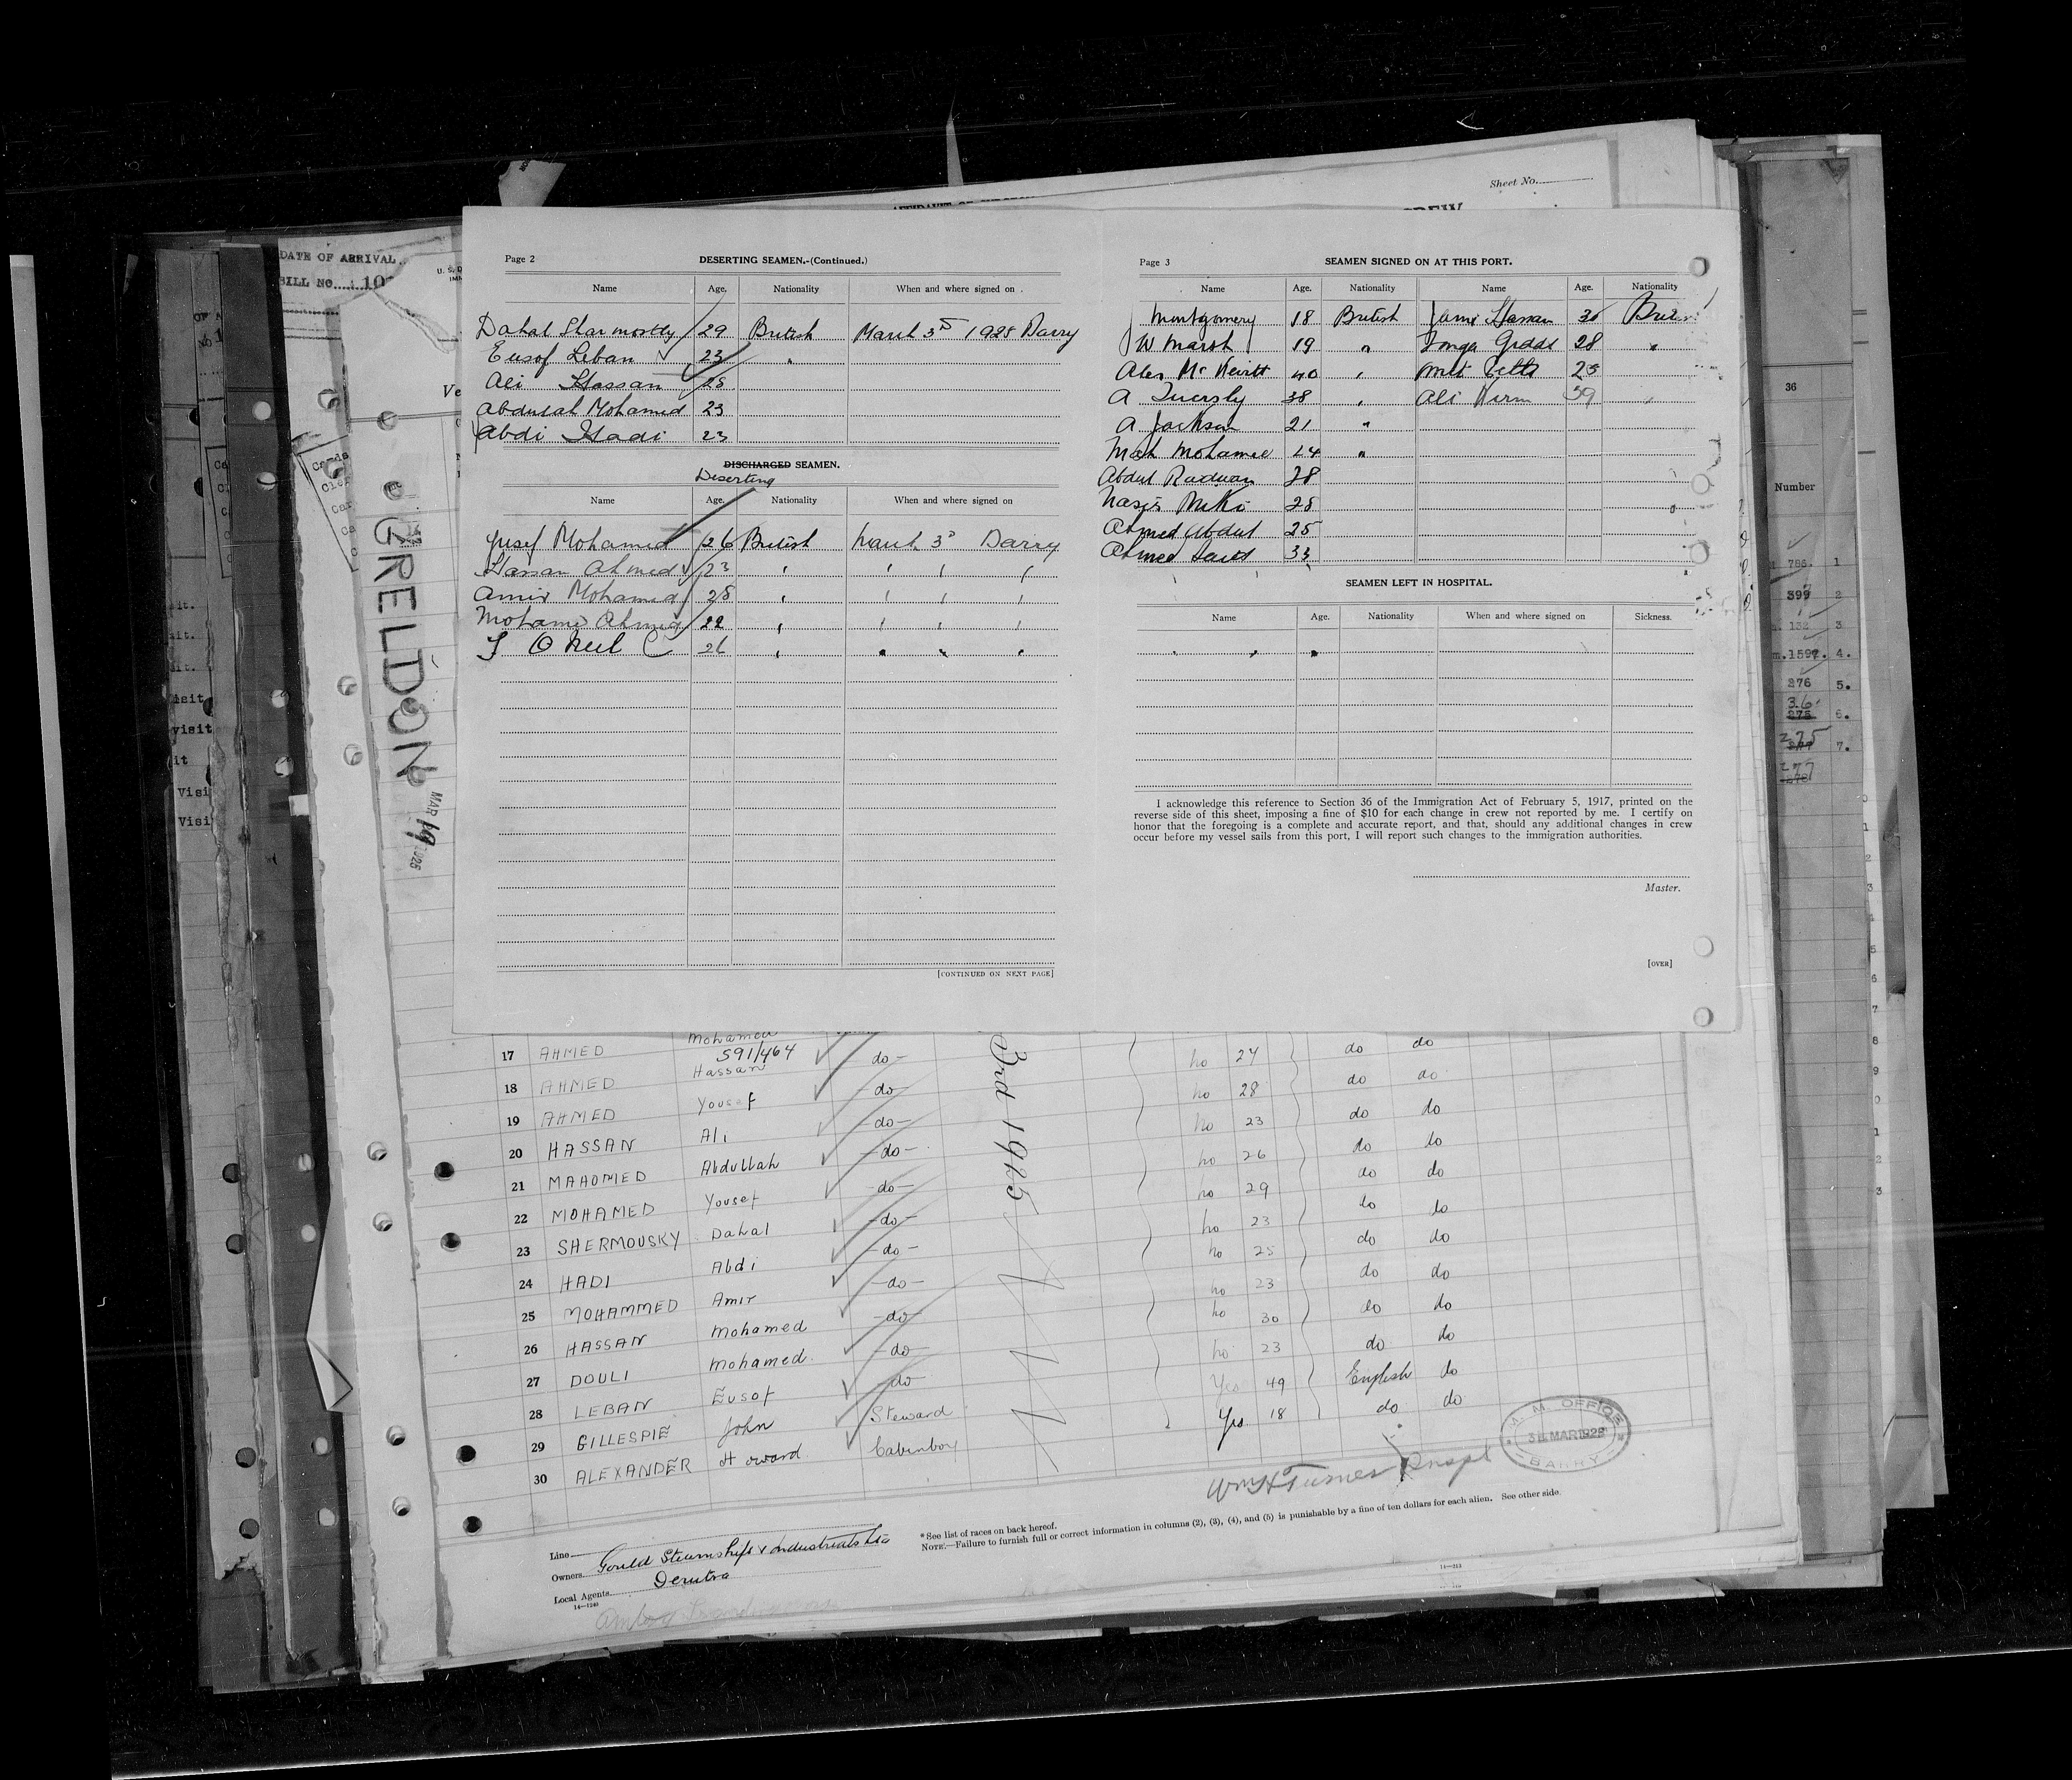 Sheet No.
DATE OF ARRIVAL
BILL No.
Page 2 DESERTING SEAMEN.-(Continued.)
Name Age. Nationality When and where signed on
Dahal Sharmostly 29 British March 3rd 1925 Barry
Eusof Leban 23 "
Ali Hassan 28
Abdulah Mohamed 23
Abdi Hadi 23
DISCHARGED SEAMEN.
Deserting
Name Age. Nationality When and where signed on
Yusef Mohamed 26 British March 3rd Barry
Hassan Ahmed 23 " " " "
Amir Mohamed 28 " " " "
Mohamed Ahmed 22 " " " "
O Neil 26 " " " "
[CONTINUED ON NEXT PAGE]
Page 3 SEAMEN SIGNED ON AT THIS PORT.
Name Age. Nationality Name Age. Nationality
Montgomery 18 British Jama Hassan 30
W Marsh 19 " 28 "
Alex Mc Nevitt 40 "
A 38 " Ali 39 "
A Jackson 21 "
Mah Mohamed 24 "
Abdul Radwan 28
Nasir 28
Ahmed Abdul 25
Ahmed 33
SEAMEN LEFT IN HOSPITAL.
Name Age. Nationality When and where signed on Sickness.
I acknowledge this reference to Section 36 of the Immigration Act of February 5, 1917, printed on the
reverse side of this sheet, imposing a fine of $10 for each change in crew not reported by me. I certify on
honor that the foregoing is a complete and accurate report, and that, should any additional changes in crew
occur before my vessel sails from this port, I will report such changes to the immigration authorities.
Master.
[OVER]
GRELDON
MAR 19 1925
36
Number
786. 1
399 2
132 3
m.1597. 4.
276 5.
36
275 6.
275
7.
277
Mohamed
17 AHMED 591/464 do no 24 do do
18 AHMED Hassan do no 28 do do
19 AHMED Yousef do no 23 do do
20 HASSAN Ali do no 26 do do
21 MAHOMED Abdullah do no 29 do do
22 MOHAMED Yousef do no 23 do do
23 SHERMOUSKY Dahal do no 25 do do
24 HADI Abdi do no 23 do do
25 MOHAMMED Amir do no 30 do do
26 HASSAN Mohamed do no 23 do do
27 DOULI Mohamed do
28 LEBAN Eusof do
29 GILLESPIE John Steward Yes 49 English do
30 ALEXANDER Howard Cabinboy Yes 18 do do
3rd 1925
M. M. OFFICE
3 MAR 1925
BARRY
Wm H Turner
Line
Owners Gould Steamships & Industrials Ltd
Local Agents Derutra
14—1240
* See list of races on back hereof.
NOTE.—Failure to furnish full or correct information in columns (2), (3), (4), and (5) is punishable by a fine of ten dollars for each alien. See other side.